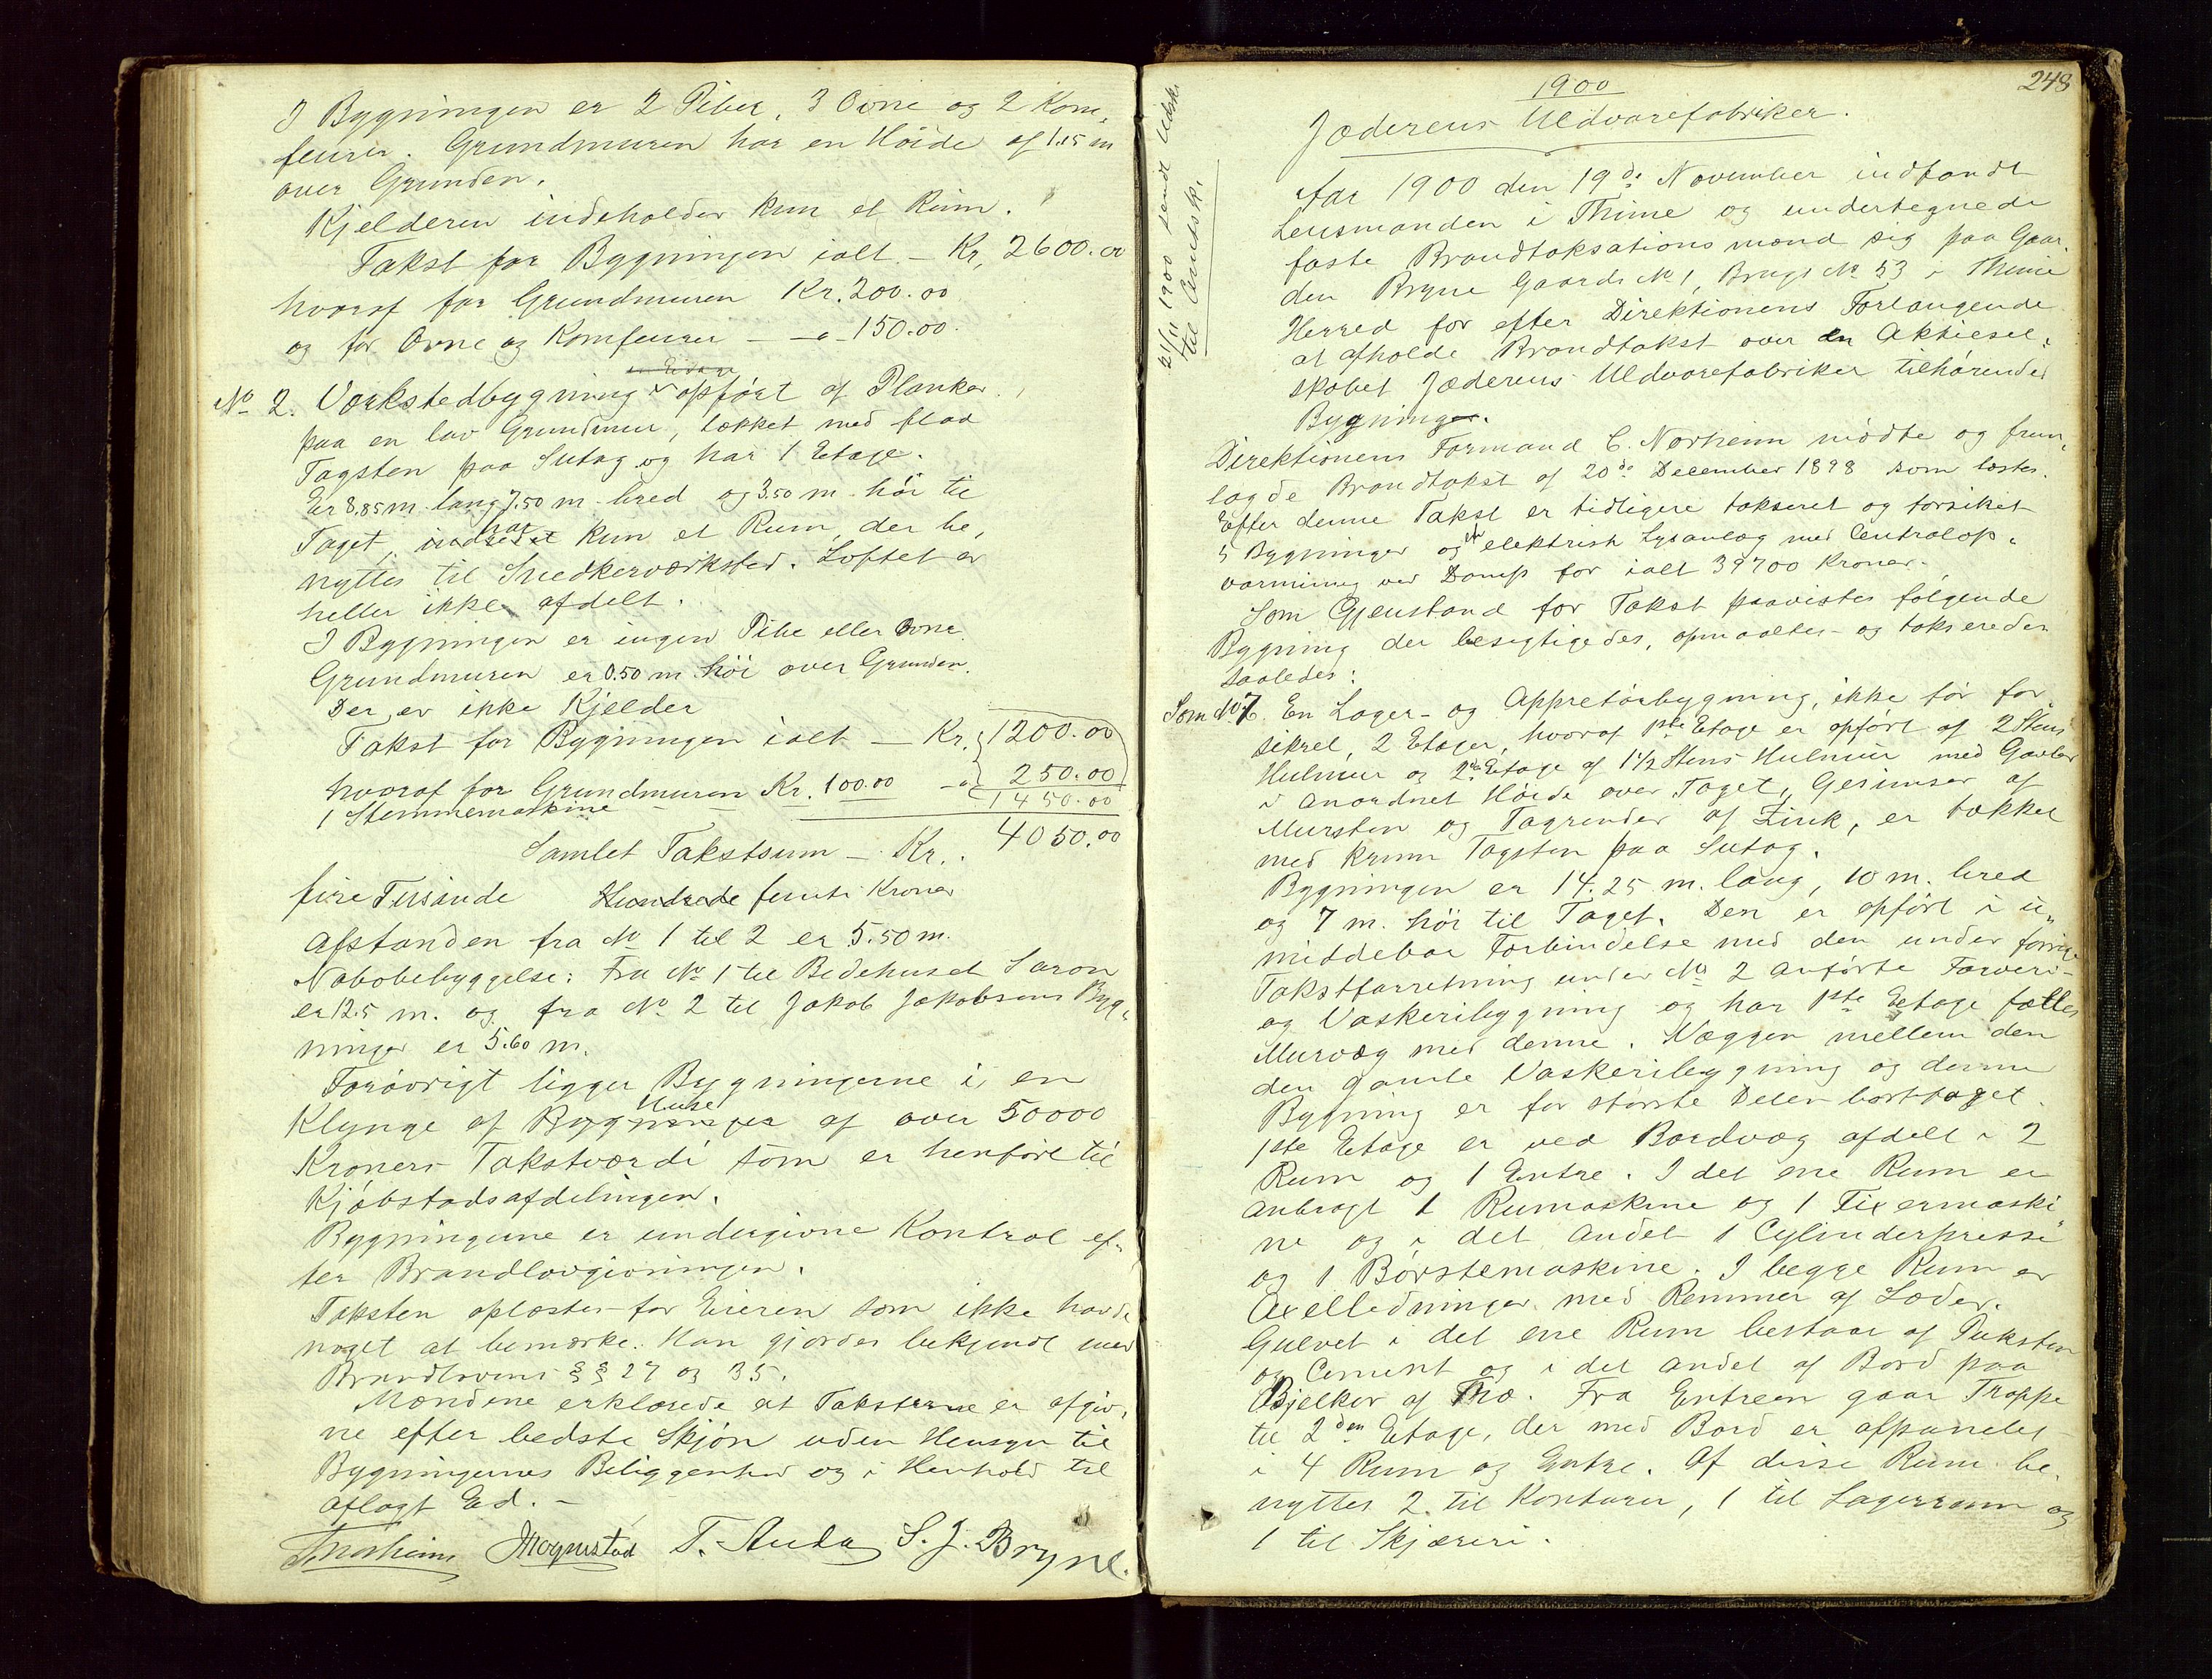 I Bygningen er 2 Piber, 3 Ovne og 2 Kom-
feurer. Grundmuren har en Höide af 1.15 m
over Grunden.
Kjelderen indeholder kun et Rum.
Takst for Bygningen ialt — Kr. 2600.00
hvoraf for Grundmuren Kr. 200.00
og for Ovne og Komfeurer - — " - 150.00.
No 2. Værkstedbygning opfört af Planker
paa en lav Grundmur, tækket med flad
Tagsten paa Sutag og har 1 Etage.
Er 8.85 m lang 7.50 m bred og 3.50 m höi til
Taget, har kun et Rum, der be-
nyttes til Snedkerværksted. Loftet er
heller ikke afdelt.
I Bygningen er ingen Pibe eller Ovne.
Grundmuren er 0.50 m höi over Grunden.
Der er ikke Kjelder
Takst for Bygningen ialt — Kr. 1200.00
hvoraf for Grundmuren Kr. 100.00 — " 250.00
1 Stemmemaskine — — 1450.00
Samlet Takstsum — Kr. 4050.00
fire Tusinde Hundrede femti Kroner
Afstanden fra No 1 til 2 er 5.50 m.
Nabobebyggelse: Fra No 1 til Bedehuset Saron
er 12.5 m. og fra No 2 til Jakob Jakobsens Byg-
ninger er 5.60 m.
Forövrigt ligger Bygningerne i en
Klynge af Huse af over 50000
Kroners Takstværdi som er henfört til
Kjöbstadsafdelingen.
Bygningerne er undergivne Kontrol ef-
ter Brandlovgivningen.
Taksten oplæstes for Eieren som ikke havde
noget at bemærke. Han gjordes bekjendt med
Brandlovens §§ 27 og 35.
Mændene erklærede at Taksterne er afgiv-
ne efter bedste Skjön uden Hensyn til
Bygningernes Beliggenhed og i Henhold til
aflagt Ed. —
T. Auda S. J. Bryne.
248
1900
Jæderens Uldvarefabriker.
21/11 1900 sendt Udskr.
til Amtssk.
Aar 1900 den 19de November indfandt
Lensmanden i Thime og undertegnede
faste Brandtaksationsmænd sig paa Gaar-
den Bryne Gaards No 1, Brugs No 53 i Thime
Herred for efter Direktionens Forlangende
at afholde Brandtakst over en Aktiesel-
skabet Jæderens Uldvarefabriker tilhörendes
Bygning.
Direktionens Formand C. Norheim mödte og frem-
lagde Brandtakst af 20de December 1898 som læstes.
Efter denne Takst er tidligere takseret og forsikret
5 Bygninger og et elektrisk Lysanlæg med Centralop-
varmning ved Damp for ialt 39700 Kroner.
Som Gjenstand for Takst paavistes fölgende
Bygning der besigtigedes, opmaaltes og takseredes
saaledes:
Som No 7. En Lager- og Appretörbygning, ikke för for-
sikret, 2 Etager, hvoraf 1ste Etage er opfört af 2 Stens
Hulmur og 2de Etage af 1 1/2 Stens Hulmur med Gavler
i anordnet Höide over Taget, Gesimser af
Mursten og Tagrender af Zink, er tækket
med krum Tagsten paa Sutag.
Bygningen er 14.25 m. lang, 10 m. bred
og 7 m. höi til Taget. Den er opfört i u-
middebar Forbindelse med den under forrige
Takstforretning under No 2 anförte Farveri-
og Vaskeribygning og har 1ste Etage fælles
Murvæg med denne. Væggen mellem den
den gamle Vaskeribygning og denne
Bygning er for störste Delen borttaget.
1ste Etage er ved Bordvæg afdelt i 2
Rum og 1 Entre. I det ene Rum er
anbragt 1 Rumaskine og 1 Fixermaski-
ne og i det andet 1 Cylinderpresse
og 1 Börstemaskine. I begge Rum er
Axelledninger med Remmer af Læder.
Gulvet i det ene Rum bestaar af Puksten
og Cement og i det andet af Bord paa
Bjelker af Træ. Fra Entreen gaar Trappe
til 2den Etage, der med Bord er afpanelet
i 4 Rum og Entre. Af disse Rum be-
nyttes 2 til Kontorer, 1 til Lagerrum og
1 til Skjæreri.